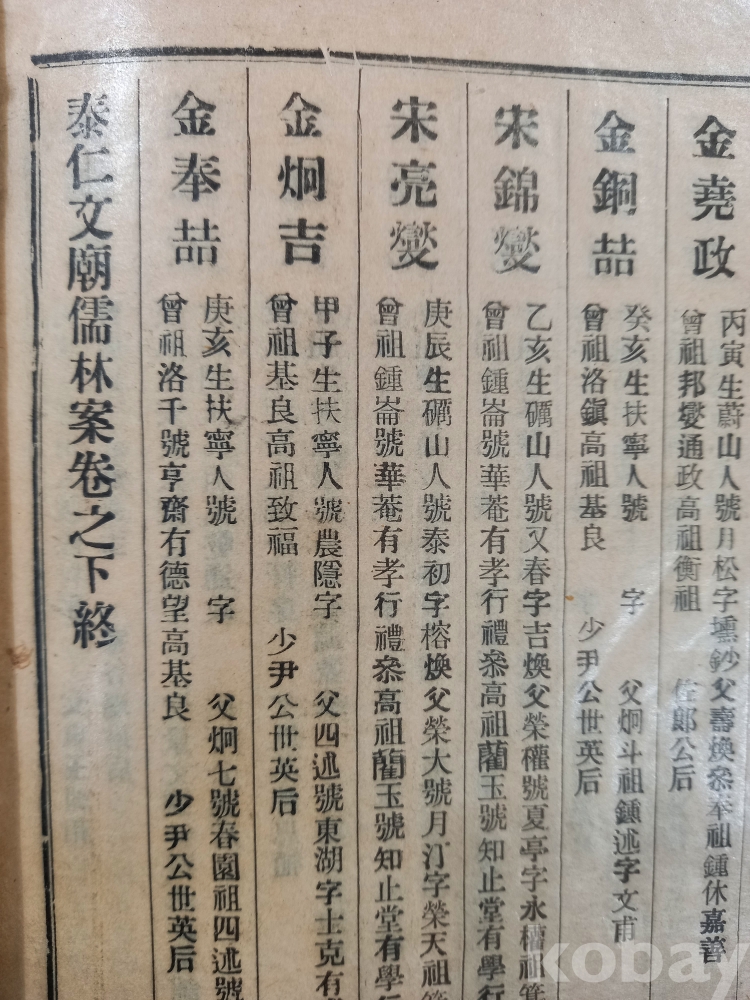 金堯政
丙寅生蔚山人號月松字壎鈔父壽煥叅奉祖鍾休嘉善
曾祖邦燮通政高祖衡祖 佐郞公后
金鋼喆
癸亥生扶寧人號 字 父炯斗祖鍾述字文甫
曾祖洛鎭高祖基良 少尹公世英后
宋錦燮
乙亥生礪山人號又春字吉煥父榮權號夏亭字永權祖
曾祖鍾崙號華菴有孝行禮叅高祖藺玉號知止堂有學行
宋亮燮
庚辰生礪山人號泰初字榕煥父榮大號月汀字榮天祖
曾祖鍾崙號華菴有孝行禮叅高祖藺玉號知止堂有學行
金炯吉
甲子生扶寧人號農隱字 父四述號東湖字士克有
曾祖基良高祖致福 少尹公世英后
金奉喆
庚亥生扶寧人號 字 父炯七號春園祖四述號
曾祖洛千號亨齋有德望高基良 少尹公世英后
泰仁文廟儒林案卷之下終
kobay